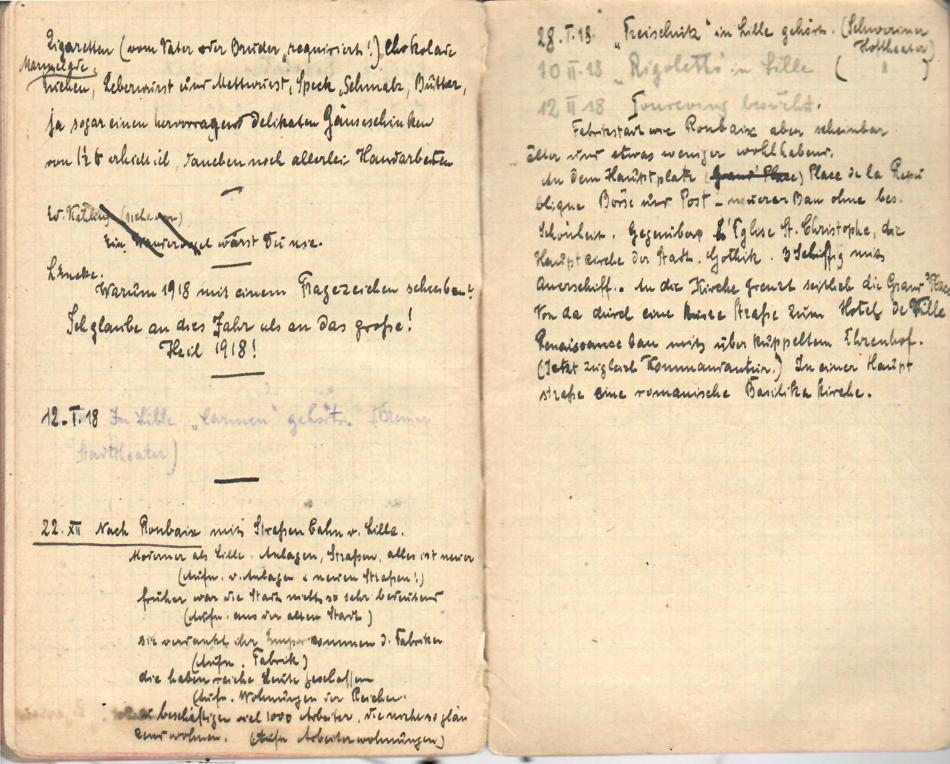 Zigaretten (vom Vater oder Bruder „requiriert!") Chokolade
Marmelade,
Kuchen, Leberwurst und Mettwurst, Speck, Schmalz, Butter,
ja sogar einen hervorragend delikaten Gänseschinken
von 1½ ℔ erhielt ich, daneben noch allerlei Handarbeiten
Ein Wandervogel wärst Du nie.
Warum 1918 mit einem Fragezeichen schreiben?
Ich glaube an dies Jahr als an das große!
Heil 1918!
12.I.18 In Lille „Carmen" gehört. (Bremer
Stadttheater)
22. XII Nach Roubaix mit Straßenbahn v. Lille.
Moderner als Lille. Anlagen, Straßen, alles ist neuer
(Aufn. v. Anlagen & neuen Straßen!)
früher war die Stadt nicht so sehr bedeutend
(Aufn. aus der alten Stadt)
sie verdankt ihr Emporkommen d. Fabriken
(Aufn. Fabrik)
die haben reiche Leute geschaffen
(Aufn. Wohnungen der Reichen.
beschäftigen viel 1000 Arbeiter, die nicht so glän
zend wohnen. (Aufn Arbeiterwohnungen)
28.I.18. „Freischütz" in Lille gehört. (Schweriner
Hoftheater)
10 II.18 „Rigoletto" in Lille ( " )
12 II 18 Tourcoing besucht.
Fabrikstadt wie Roubaix aber scheinbar
älter und etwas weniger wohlhabend.
An dem Hauptplatz (Grand Place) Place de la Repu
blique Börse und Post – neuerer Bau ohne bes.
Schönheit. Gegenüber L'Eglise St. Christophe, die
Hauptkirche der Stadt. Gothik. 3 Schiffig mit
Querschiff. An die Kirche grenzt seitlich die Grand Place
Von da durch eine kurze Straße zum Hotel de Ville
Renaissancebau mit überkuppeltem Ehrenhof.
(Jetzt zugleich Kommandantur.) In einer Haupt
straße eine romanische Basilika kirche.